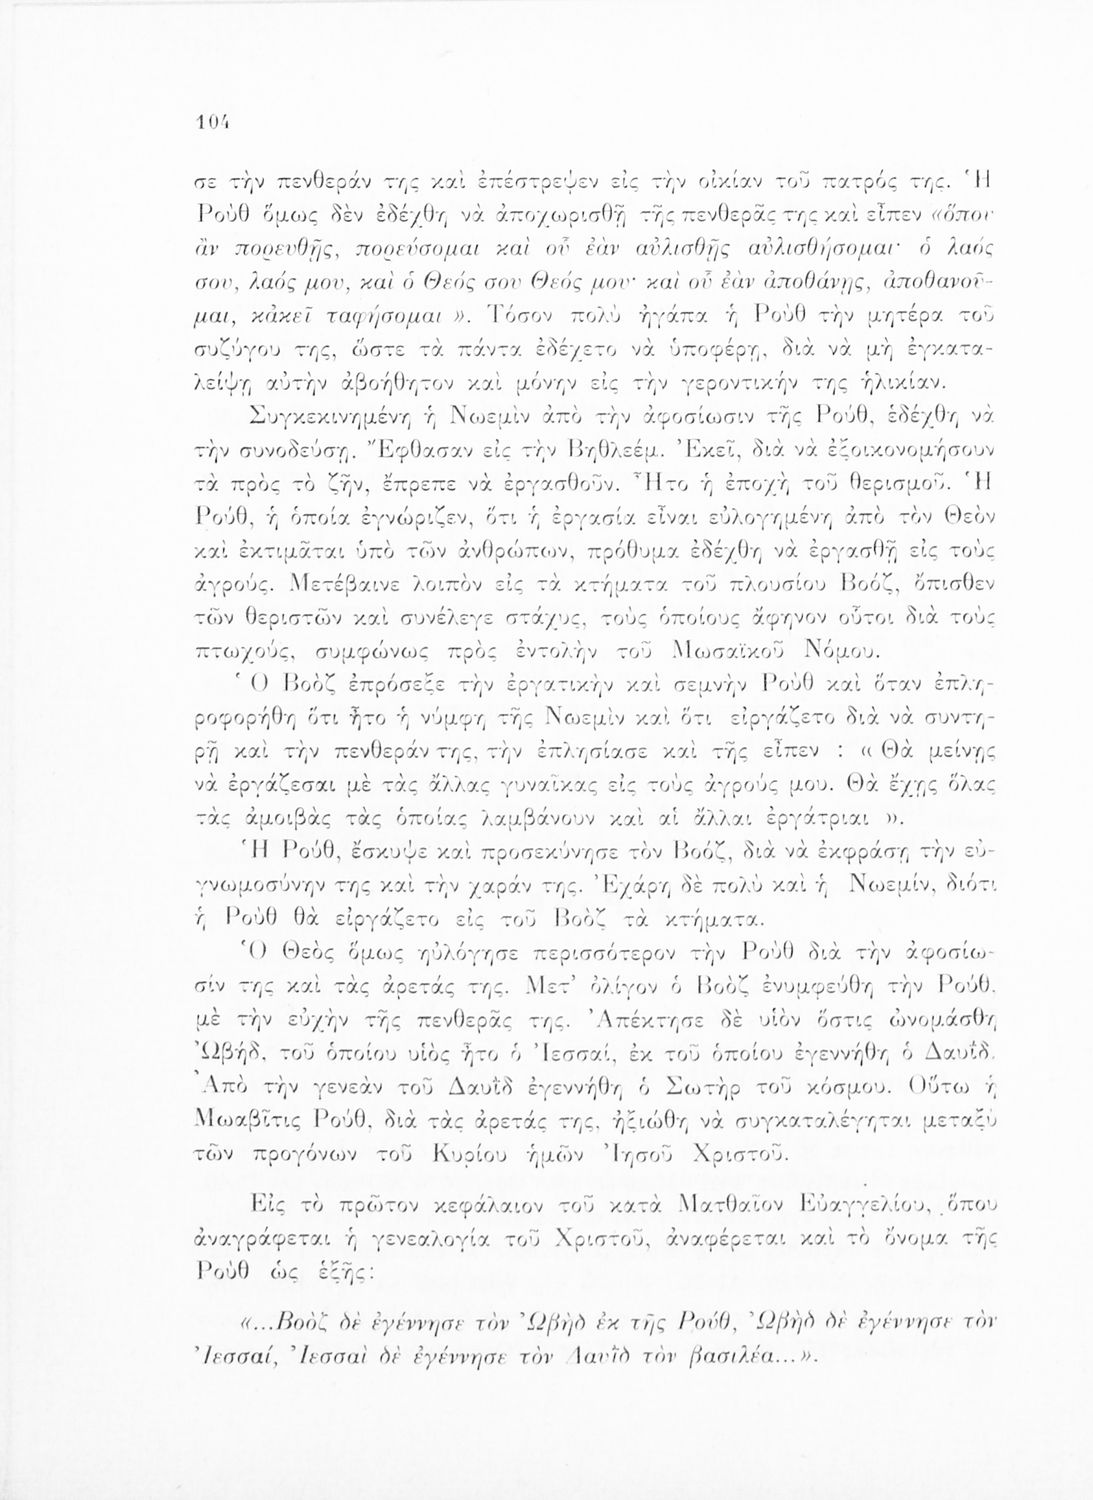 104
σε τὴν πενθεράν της καὶ ἐπέστρεψεν εἰς τὴν οἰκίαν τοῦ πατρός της. Ἡ
Ρούθ ὅμως δὲν ἐδέχθη νὰ ἀποχωρισθῇ τῆς πενθερᾶς της καὶ εἶπεν «ὅπου
ἂν πορευθῇς, πορεύσομαι καὶ οὗ ἐὰν αὐλισθῇς αὐλισθήσομαι· ὁ λαός
σου, λαός μου, καὶ ὁ Θεός σου Θεός μου· καὶ οὗ ἐὰν ἀποθάνῃς, ἀποθανοῦ-
μαι, κἀκεῖ ταφήσομαι ». Τόσον πολὺ ἠγάπα ἡ Ρούθ τὴν μητέρα τοῦ
συζύγου της, ὥστε τὰ πάντα ἐδέχετο νὰ ὑποφέρῃ, διὰ νὰ μὴ ἐγκατα-
λείψῃ αὐτὴν ἀβοήθητον καὶ μόνην εἰς τὴν γεροντικήν της ἡλικίαν.
Συγκεκινημένη ἡ Νωεμὶν ἀπὸ τὴν ἀφοσίωσιν τῆς Ρούθ, ἐδέχθη νὰ
τὴν συνοδεύσῃ. Ἔφθασαν εἰς τὴν Βηθλεέμ. Ἐκεῖ, διὰ νὰ ἐξοικονομήσουν
τὰ πρὸς τὸ ζῆν, ἔπρεπε νὰ ἐργασθοῦν. Ἦτο ἡ ἐποχὴ τοῦ θερισμοῦ. Ἡ
Ρούθ, ἡ ὁποία ἐγνώριζεν, ὅτι ἡ ἐργασία εἶναι εὐλογημένη ἀπὸ τὸν Θεὸν
καὶ ἐκτιμᾶται ὑπὸ τῶν ἀνθρώπων, πρόθυμα ἐδέχθη νὰ ἐργασθῇ εἰς τοὺς
ἀγρούς. Μετέβαινε λοιπὸν εἰς τὰ κτήματα τοῦ πλουσίου Βοόζ, ὄπισθεν
τῶν θεριστῶν καὶ συνέλεγε στάχυς, τοὺς ὁποίους ἄφηνον οὗτοι διὰ τοὺς
πτωχούς, συμφώνως πρὸς ἐντολὴν τοῦ Μωσαϊκοῦ Νόμου.
Ὁ Βοὸζ ἐπρόσεξε τὴν ἐργατικὴν καὶ σεμνὴν Ρούθ καὶ ὅταν ἐπλη-
ροφορήθη ὅτι ἦτο ἡ νύμφη τῆς Νωεμὶν καὶ ὅτι εἰργάζετο διὰ νὰ συντη-
ρῇ καὶ τὴν πενθεράν της, τὴν ἐπλησίασε καὶ τῆς εἶπεν : « Θὰ μείνῃς
νὰ ἐργάζεσαι μὲ τὰς ἄλλας γυναῖκας εἰς τοὺς ἀγρούς μου. Θὰ ἔχῃς ὅλας
τὰς ἀμοιβὰς τὰς ὁποίας λαμβάνουν καὶ αἱ ἄλλαι ἐργάτριαι ».
Ἡ Ρούθ, ἔσκυψε καὶ προσεκύνησε τὸν Βοόζ, διὰ νὰ ἐκφράσῃ τὴν εὐ-
γνωμοσύνην της καὶ τὴν χαράν της. Ἐχάρη δὲ πολὺ καὶ ἡ Νωεμίν, διότι
ἡ Ρούθ θὰ εἰργάζετο εἰς τοῦ Βοὸζ τὰ κτήματα.
Ὁ Θεὸς ὅμως ηὐλόγησε περισσότερον τὴν Ρούθ διὰ τὴν ἀφοσίω-
σίν της καὶ τὰς ἀρετάς της. Μετ’ ὀλίγον ὁ Βοὸζ ἐνυμφεύθη τὴν Ρούθ,
μὲ τὴν εὐχὴν τῆς πενθερᾶς της. Ἀπέκτησε δὲ υἱὸν ὅστις ὠνομάσθη
Ὠβήδ, τοῦ ὁποίου υἱὸς ἦτο ὁ Ἰεσσαί, ἐκ τοῦ ὁποίου ἐγεννήθη ὁ Δαυΐδ.
Ἀπὸ τὴν γενεὰν τοῦ Δαυῒδ ἐγεννήθη ὁ Σωτὴρ τοῦ κόσμου. Οὕτω ἡ
Μωαβῖτις Ρούθ, διὰ τὰς ἀρετάς της, ἠξιώθη νὰ συγκαταλέγηται μεταξὺ
τῶν προγόνων τοῦ Κυρίου ἡμῶν Ἰησοῦ Χριστοῦ.
Εἰς τὸ πρῶτον κεφάλαιον τοῦ κατὰ Ματθαῖον Εὐαγγελίου, ὅπου
ἀναγράφεται ἡ γενεαλογία τοῦ Χριστοῦ, ἀναφέρεται καὶ τὸ ὄνομα τῆς
Ρούθ ὡς ἑξῆς:
«...Βοὸζ δὲ ἐγέννησε τὸν Ὠβὴδ ἐκ τῆς Ρούθ, Ὠβὴδ δὲ ἐγέννησε τὸν
Ἰεσσαί, Ἰεσσαὶ δὲ ἐγέννησε τὸν Δαυῒδ τὸν βασιλέα...».